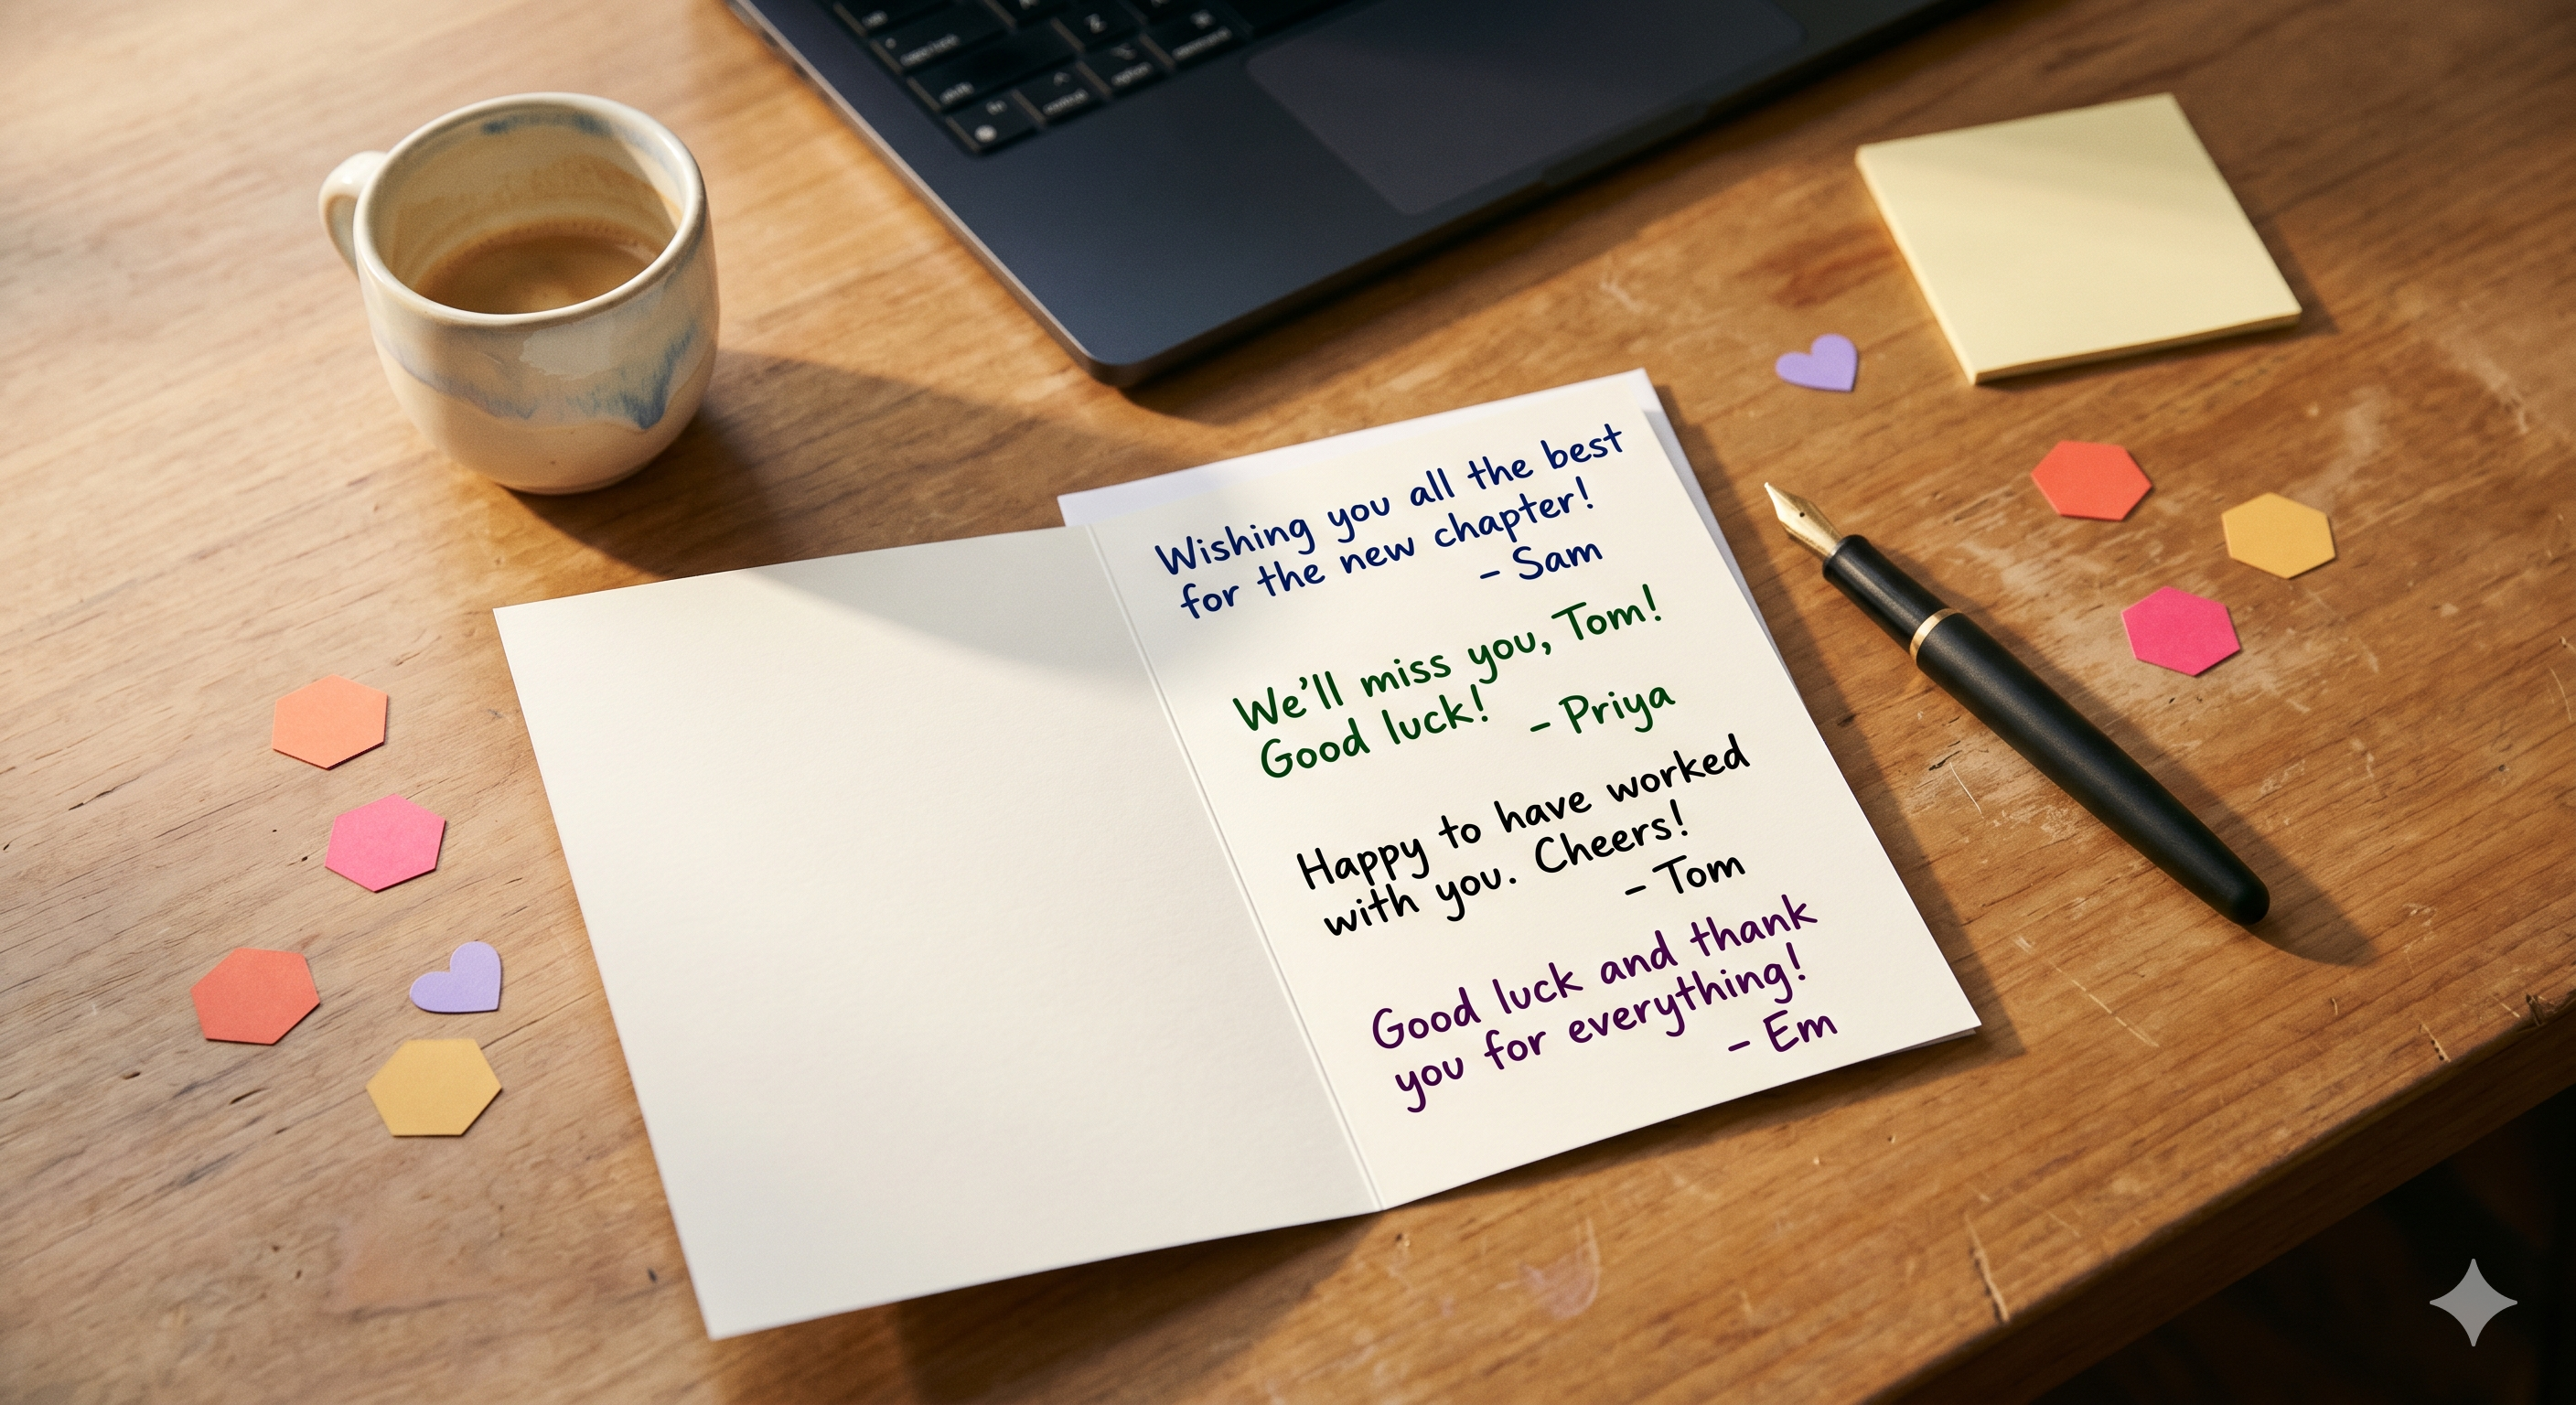 Wishing you all the best
for the new chapter!
– Sam
We'll miss you, Tom!
Good luck!
– Priya
Happy to have worked
with you. Cheers!
– Tom
Good luck and thank
you for everything!
– Em